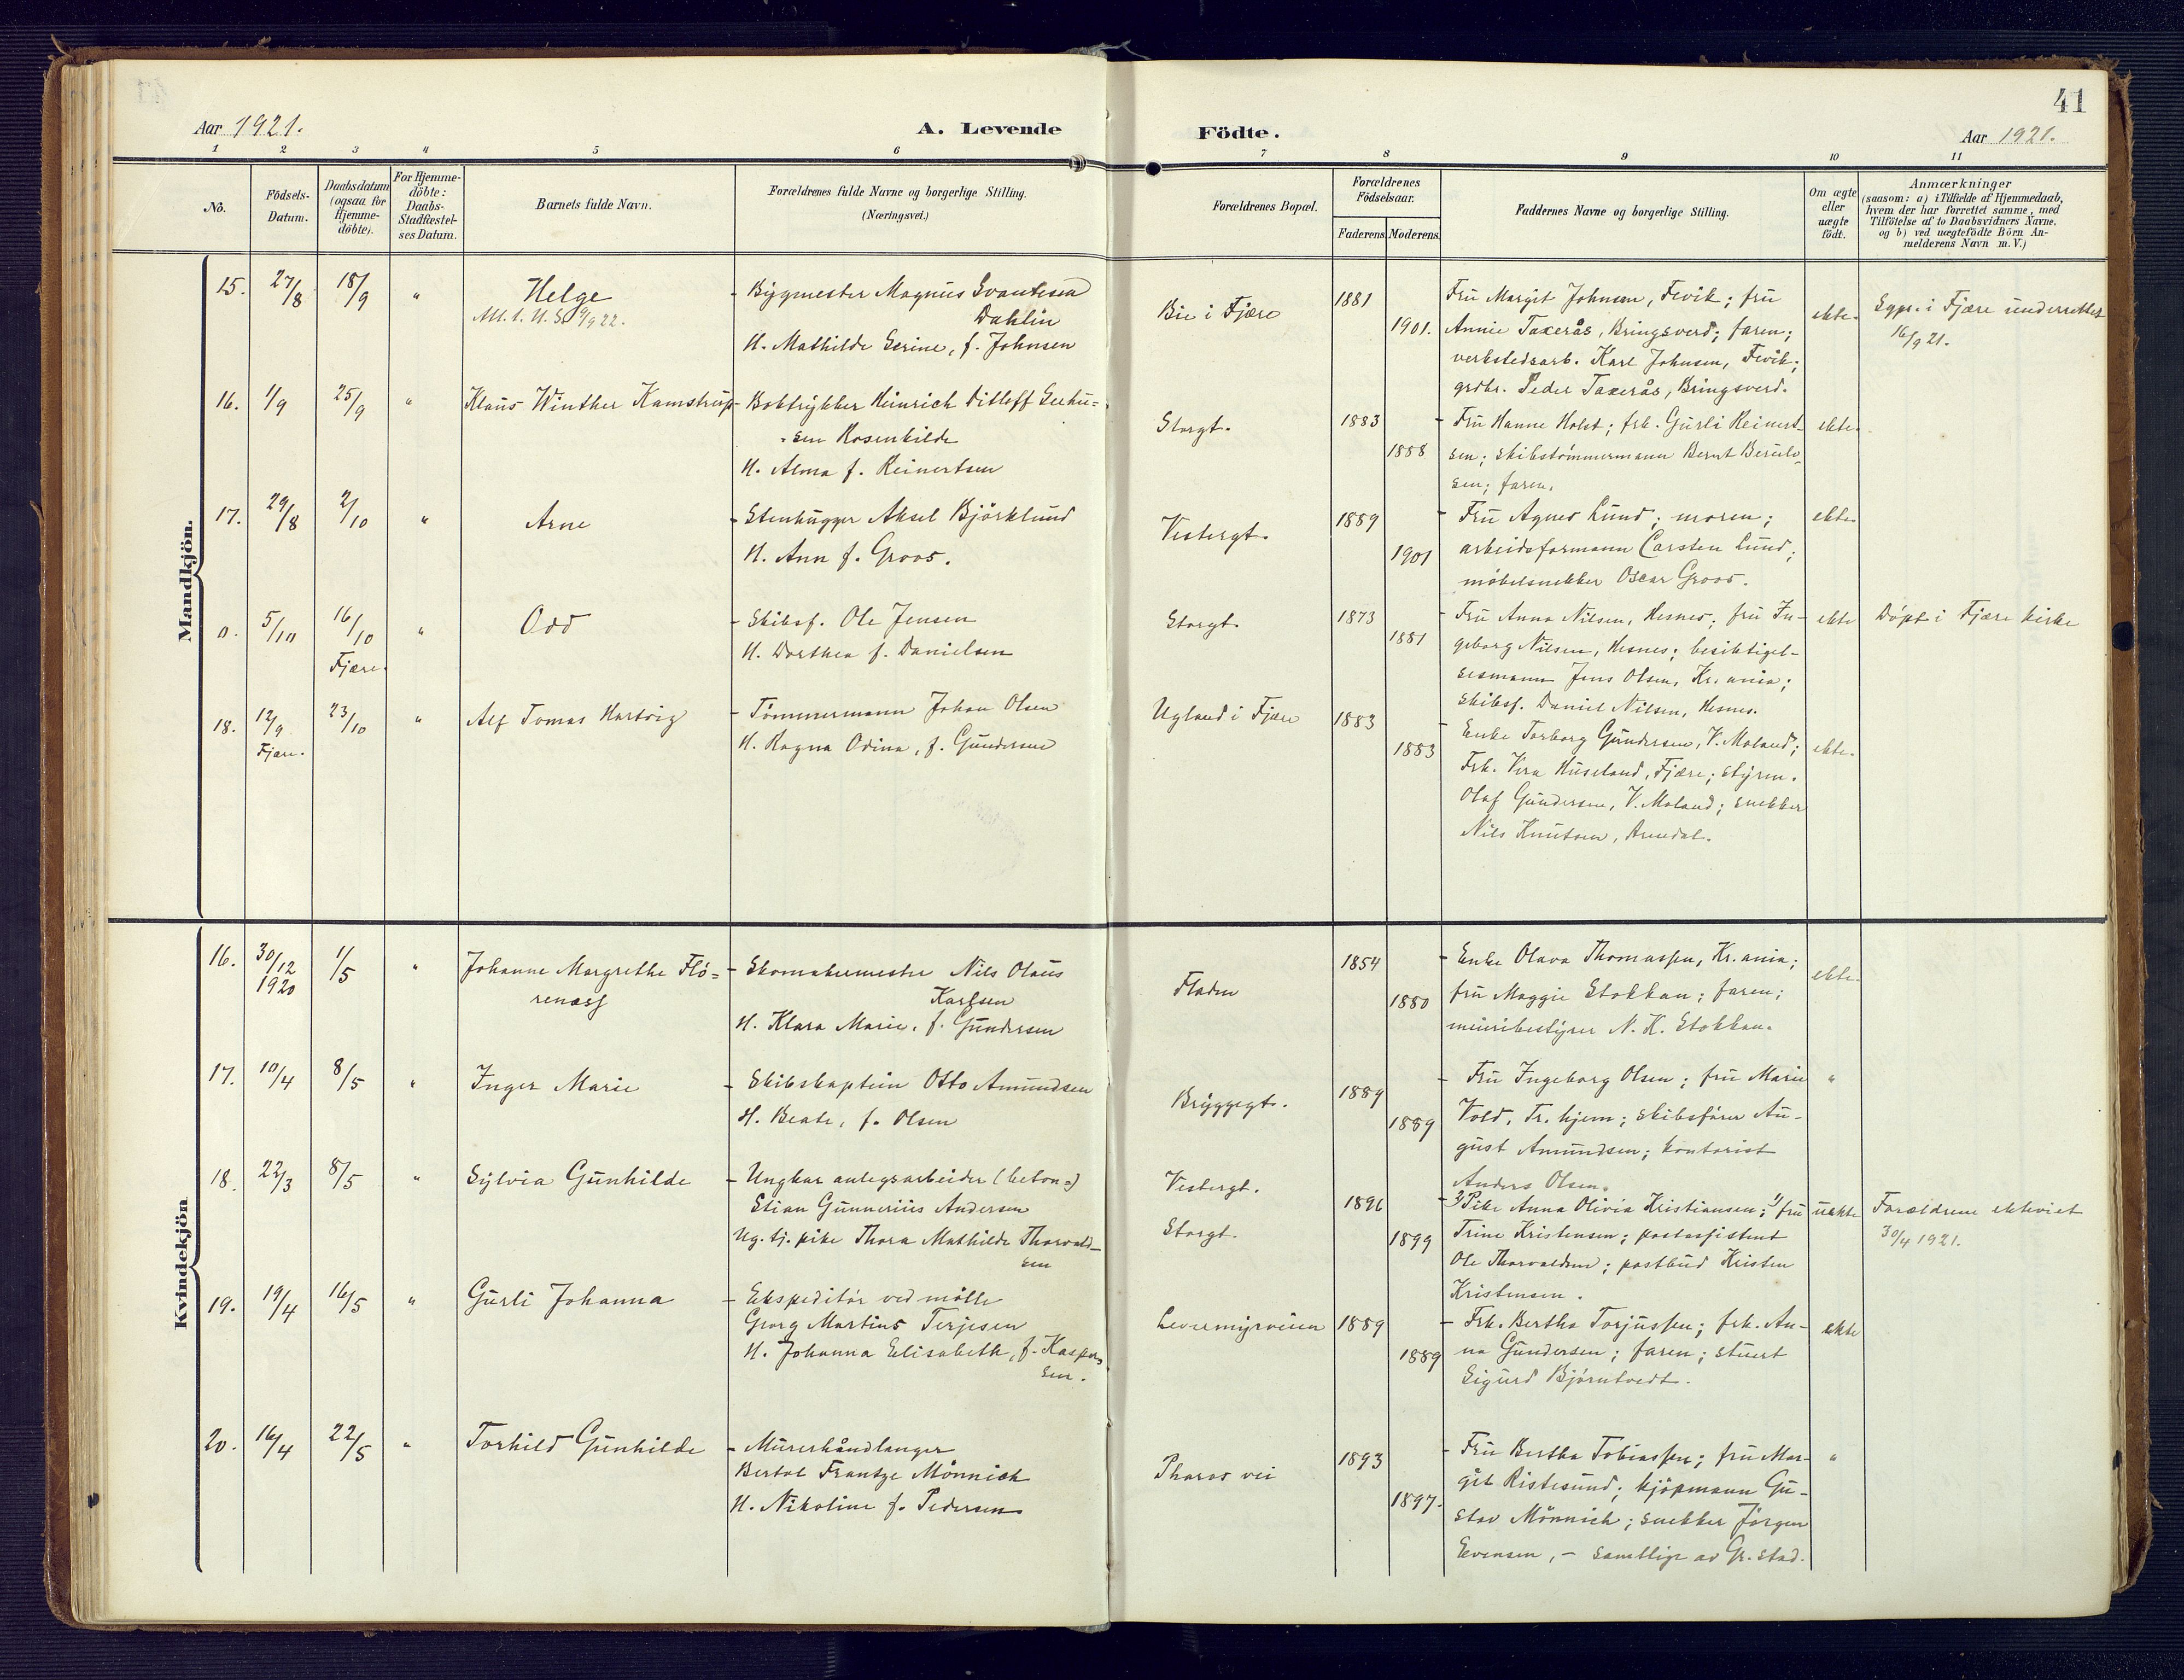 41
Aar 1921. A. Levende Födte. Aar 1921.
1 2 3 4 5 6 7 8 9 10 11
No.
Födsels-
Datum.
Daabsdatum
(ogsaa for
Hjemme-
döbte).
For Hjemme-
döbte:
Daabs-
Stadfæstel-
ses Datum.
Barnets fulde Navn.
Forældrenes fulde Navne og borgerlige Stilling.
(Næringsvei.)
Forældrenes Bopæl.
Forældrenes
Födselsaar.
Faderens. Moderens.
Faddernes Navne og borgerlige Stilling.
Om ægte
eller
uægte
födt.
Anmærkninger
(saasom: a) i Tilfælde af Hjemmedaab,
hvem der har forrettet samme, med
Tilföielse af to Daabsvidners Navne,
og b) ved uægtefödte Börn An-
melderens Navn m. V.)
Mandkjön.
15. 27/8 18/9 "
Helge
- Bygmester Magnus Svantesen
Dahlin
H. Mathilde Serine, f. Johnsen
Bie i Fjære
1881
1901.
Fru Margit Johnsen, Fevik; fru
Annie Taxerås, Bringsverd; faren;
verkstedsarb. Karl Johnsen, Fevik;
grdbr. Peder Taxerås, Bringsverd.
ekte.
Sgpr. i Fjære underrettet
16/9 21.
16. 1/9 25/9 "
Klaus Winther Kamstrup
- Boktrykker Heinrich Ditleff Seehu=
sen Rosenkilde
H. Alma f. Reinertsen
Storgt.
1883
1888
- Fru Hanne Holst; frk. Gurli Reinert-
sen; skibstömmermann Bernt
sen; faren.
ekte.
17. 29/8 2/10 "
Arne
- Stenhugger Aksel Björklund
H. Ann f. Groos.
Vestergt.
1889
1901
- Fru Agnes Lund; moren;
arbeidsformann Carsten Lund;
möbelsnekker Oscar Groos.
ekte
0. 5/10 16/10 "
Fjære.
Odd
- Skibsf. Ole Jensen
H. Dorthea f. Danielsen
Storgt.
1873
1881
- Fru Anna Nilsen, Hesnes; fru In-
geborg Nilsen, Hesnes; besiktigel-
sesmann Jens Olsen, Kr.ania;
skibsf. Daniel Nilsen, Hesnes.
ekte
Döpt i Fjære kirke
18. 12/9 23/10 "
Fjære.
Alf Tomas Hartvig
- Tömmermann Johan Olsen
H. Ragna Odina, f. Gundersen
Ugland i Fjære
1883
1883
- Enke Torborg Gundersen, V. Moland;
Frk. Vera Huseland, Fjære; styrm.
Olaf Gundersen, V. Moland; snekker
Nils Knutsen, Arendal.
ekte.
Kvindekjön
16. 30/12 1/5 "
1920
Johanne Margrethe Flo=
renæss
- Skomakermester Nils Olaus
Karlsen
H. Klara Marie, f. Gundersen
Fladen
1854
1880
- Enke Olava Thomassen, Kr.ania;
fru Maggie Stokkan; faren;
meieribestyrer N. K. Stokkan.
ekte
17. 10/4 8/5 "
Inger Marie
- Skibskaptein Otto Amundsen
H. Beate, f. Olsen
Bryggegt.
1889
1889
- Fru Ingeborg Olsen; fru Marie
Vold, Tr.hjem; skibsförer Au-
gust Amundsen; kontorist
Anders Olsen.
"
18. 22/3 8/5 "
Sylvia Gunhilde
- Ungkar anlegsarbeider (beton=)
Stian Gunnerius Andersen
Ug. tj. pike Thora Mathilde Thorvald-
sen
Vestergt.
Storgt.
1896
1899
- Pike Anna Olivia Kristiansen; fru
Trine Kristensen; postassistent
Ole Thorvaldsen; postbud Kristen
Kristensen.
uekte
Forældrene ekteviet
30/4 1921.
19. 19/4 16/5 "
Gurli Johanna
- Ekspeditör ved mölle
Georg Martius Terjesen
H. Johanna Elisabeth, f. Kasper=
sen.
Levermyrveien
1889
1889
- Frk. Bertha Torjussen; frk. An-
na Gundersen; faren; stuert
Sigurd Björntvedt.
ekte
20. 16/4 22/5 "
Torhild Gunhilde
- Murerhåndlanger
Bertol Frantze Mönnich
H. Nikoline f. Pedersen
Pharos vei
1893
1897.
- Fru Bertha Tobiassen; fru Mar-
git Ristesund; kjöpmann Gu-
stav Mönnich; snekker Jörgen
Evensen, - samtlige av Gr.stad.
"